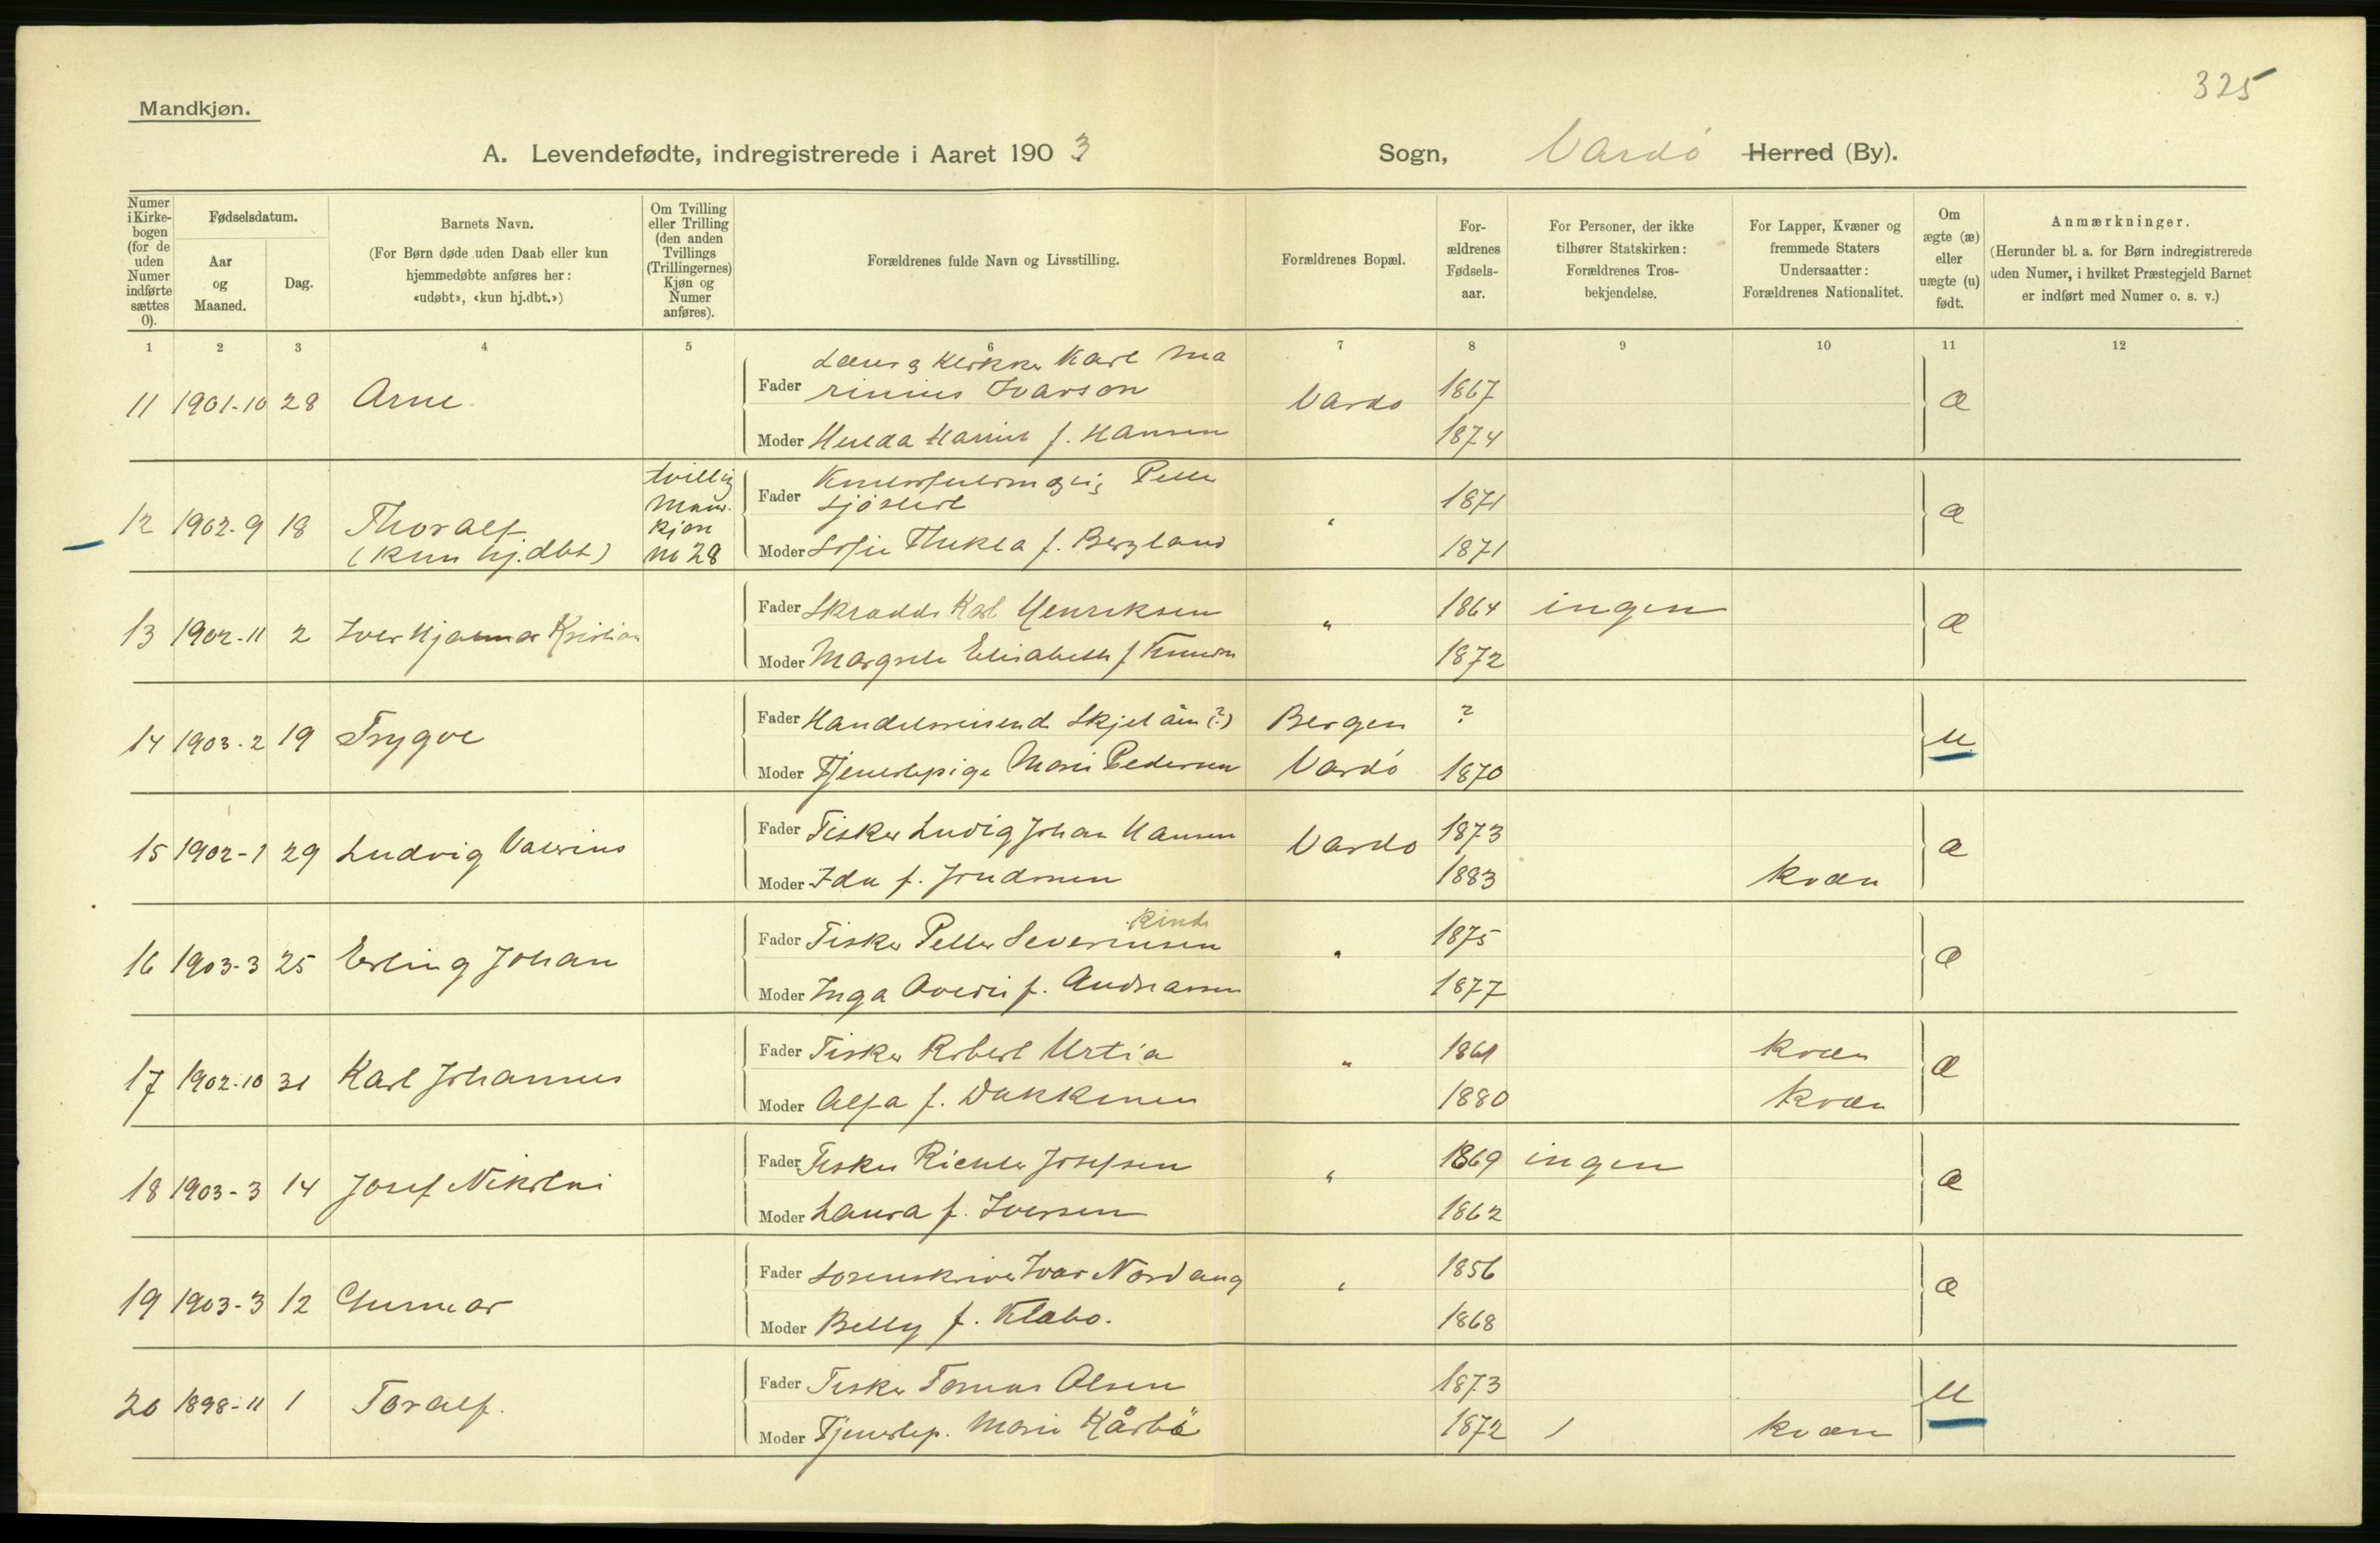 325
Mandkjøn.
A. Levendefødte, indregistrerede i Aaret 1903 Sogn, Vardö Herred (By).
Numer i Kirkebogen (for de uden Numer indførte sættes 0).
Fødselsdatum.
Aar og Maaned.
Dag.
Barnets Navn.
(For Børn døde uden Daab eller kun hjemmedøbte anføres her: «udøbt», «kun hj.dbt.»)
Om Tvilling eller Trilling (den anden Tvillings (Trillingernes) Kjøn og Numer anføres).
Forældrenes fulde Navn og Livsstilling.
Forældrenes Bopæl.
Forældrenes Fødselsaar.
For Personer, der ikke tilhører Statskirken: Forældrenes Trosbekjendelse.
For Lapper, Kvæner og fremmede Staters Undersaatter: Forældrenes Nationalitet.
Om ægte (æ) eller uægte (u) født.
Anmærkninger.
(Herunder bl. a. for Børn indregistrerede uden Numer, i hvilket Præstegjeld Barnet er indført med Numer o. s. v.)
1 2 3 4 5 6 7 8 9 10 11 12
11 1901-10 28 Arne
Fader Karl Marinius Ivarson Vardo 1867 æ
Moder f. Hansen 1874
12 1902-9 18 Thoralf (kun hj.dbt) tvillig Mank. kjön no 28
Fader Petter Sjöstedt " 1871 æ
Moder Sofie Thekla f. Bergland 1871
13 1902-11 2 Iver Hjalmar Kristian
Fader Skrædder Karl Henriksen " 1864 ingen æ
Moder Margrete Elisabeth f. 1872
14 1903-2 19 Trygve
Fader Handelsreisende (?) Bergen ? u
Moder Tjenestepige Marie Pedersen Vardö 1870
15 1902-1 29 Ludvig Valerius
Fader Fisker Ludvig Johan Hansen Vardo 1873 æ
Moder Ida f. 1883 kvæn
16 1903-3 25 Erling Johan
Fader Fisker Petter Severinsen " 1875 æ
Moder Inga f. Andreassen 1877
17 1902-10 31 Karl Johannes
Fader Fisker Robert Urtia " 1861 kvæn æ
Moder f. 1880 kvæn
18 1903-3 14 Josef Nikolai
Fader Fisker Josefsen " 1869 ingen æ
Moder Laura f. Iversen 1862
19 1903-3 12 Gunnar
Fader Sorenskriver Ivar Nordang " 1856 æ
Moder Betty f. Klæbo. 1868
20 1898-11 1 Toralf.
Fader Fisker Tomas Olsen 1873 u
Moder Tjenestep. Marie 1872 / kvæn